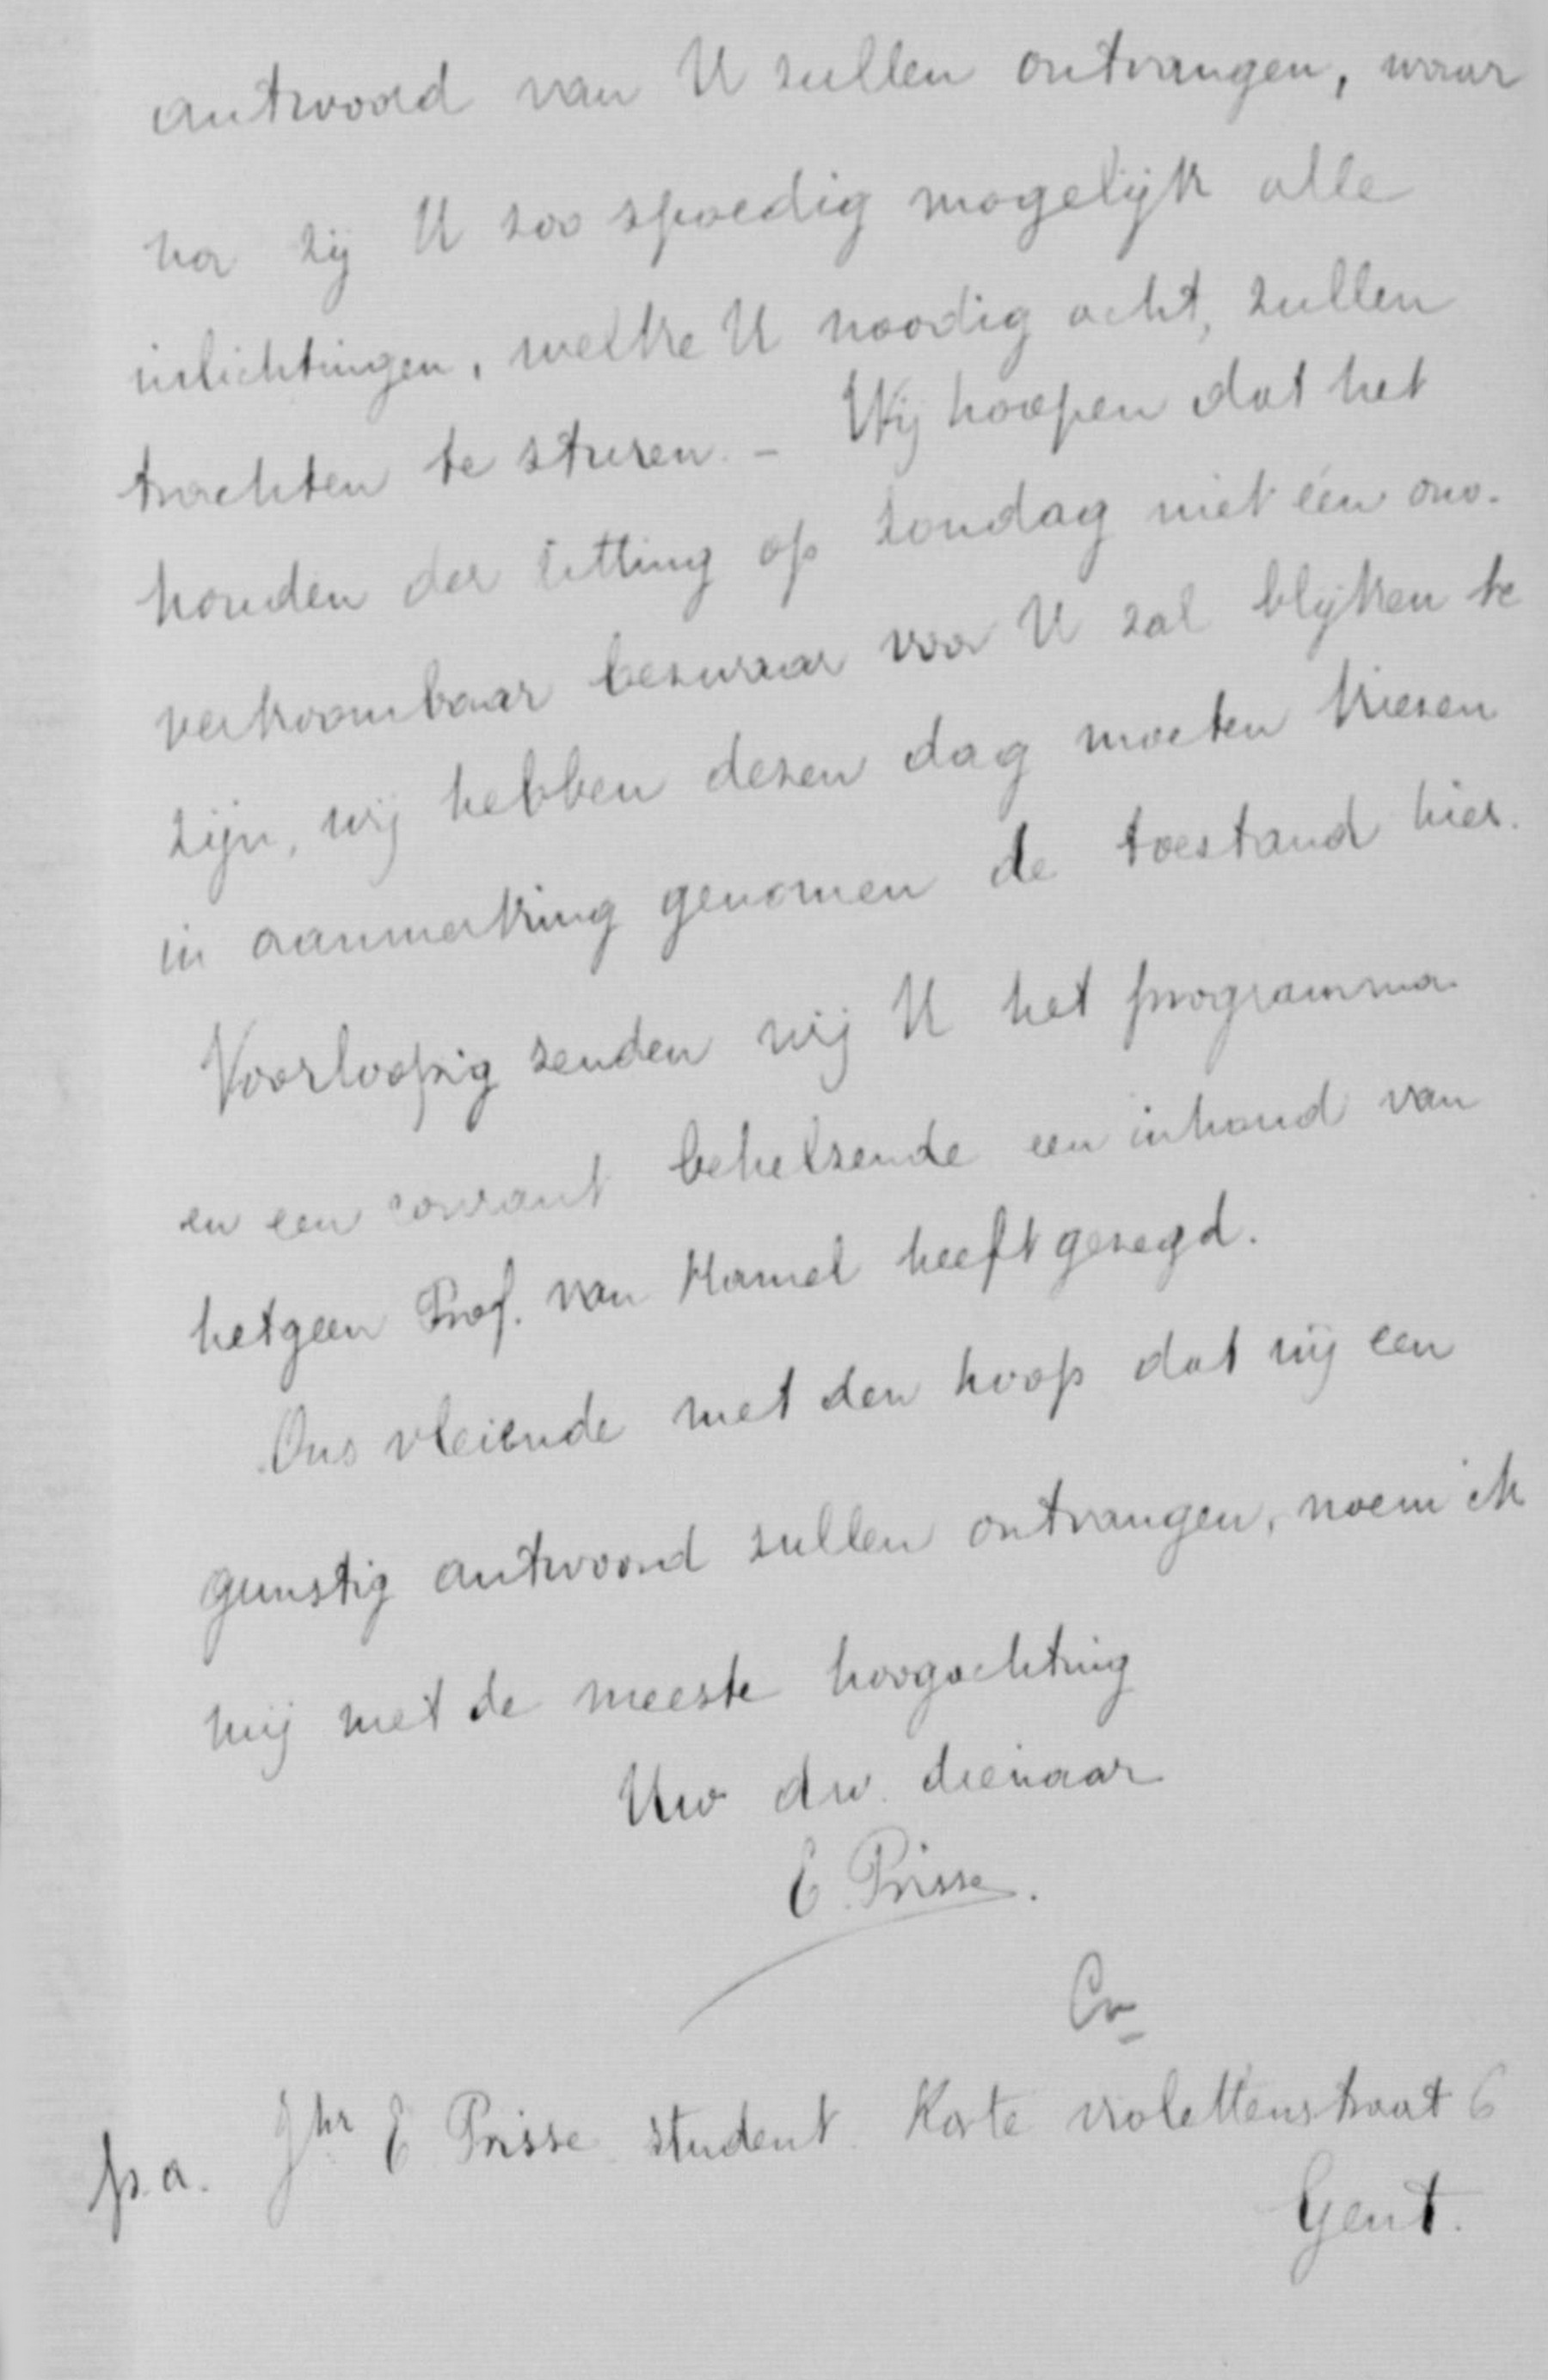 antwoord van U zullen ontvangen, waar
na zij U zoo spoedig mogelijk alle
inlichtingen, welke U noodig acht, zullen
trachten te sturen. - Wij hoopen dat het
houden der zitting op Zondag niet één ono-
verkoombaar bezwaar voor U zal blijken te
zijn, wij hebben dezen dag moeten kiezen
in aanmerking genomen de toestand hier.
Voorloopig zenden wij U het programma
en een courant behelzende een inhoud van
hetgeen Prof. van Hamel heeft gezegd.
Ons vleiende met den hoop dat wij een
gunstig antwoord zullen ontvangen, noem ik
mij met de meeste hoogachting
Uw dw. dienaar
E. Prisse.
p.a. Jhr E Prisse student. Korte violettenstraat 6
Gent.